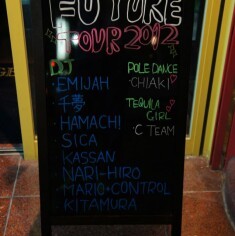 FUTURE
TOUR 2012
DJ
EMIJAH
千夢
HAMACHI
SICA
KASSAN
NARI-HIRO
MARIO CONTROL
KITAMURA
POLE DANCE
CHIAKI
TEQUILA
GIRL
C TEAM